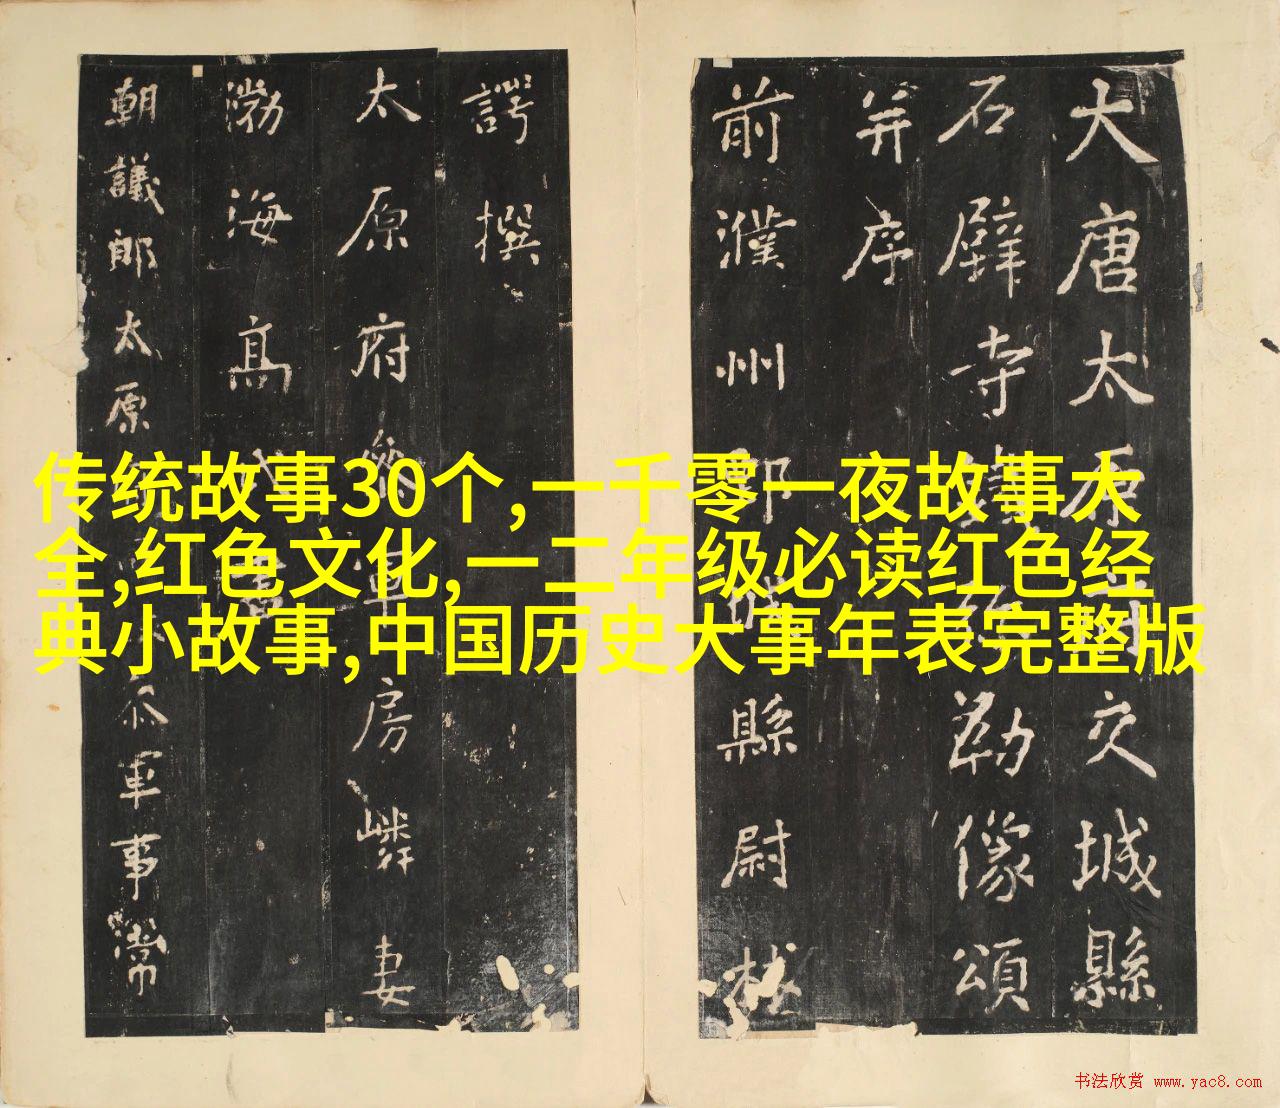 大唐太原交城縣
石壁寺鐵弥勒像頌
并序
前濮州鄄城縣尉林
諤撰
太原府參軍房嶙妻
渤海高氏書
朝議郎太原叅軍事常
传统故事30个,一千零一夜故事大
全,红色文化,一二年级必读红色经
典小故事,中国历史大事年表完整版
书法欣赏 www.yac8.com